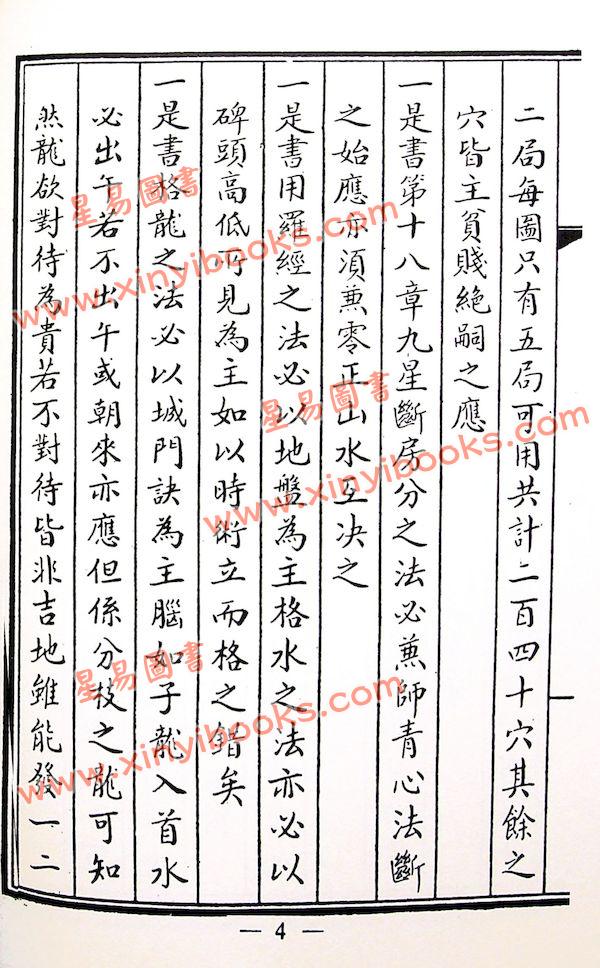 二局每圖只有五局可用共計二百四十穴其餘之
穴皆主貧賤絕嗣之應
一是書第十八章九星斷房分之法必兼師青心法斷
之始應亦須兼零正山水互決之
一是書用羅經之法必以地盤為主格水之法亦必以
碑頭高低所見為主如以時術立而格之錯矣
一是書格龍之法必以城門訣為主腦如子龍入首水
必出午若不出午或朝來亦應但係分枝之龍可知
然龍欲對待為貴若不對待皆非吉地雖能發一二
— 4 —
星易圖書
www.xinyibooks.com
星易圖書
www.xinyibooks.com
星易圖書
www.xinyibooks.com